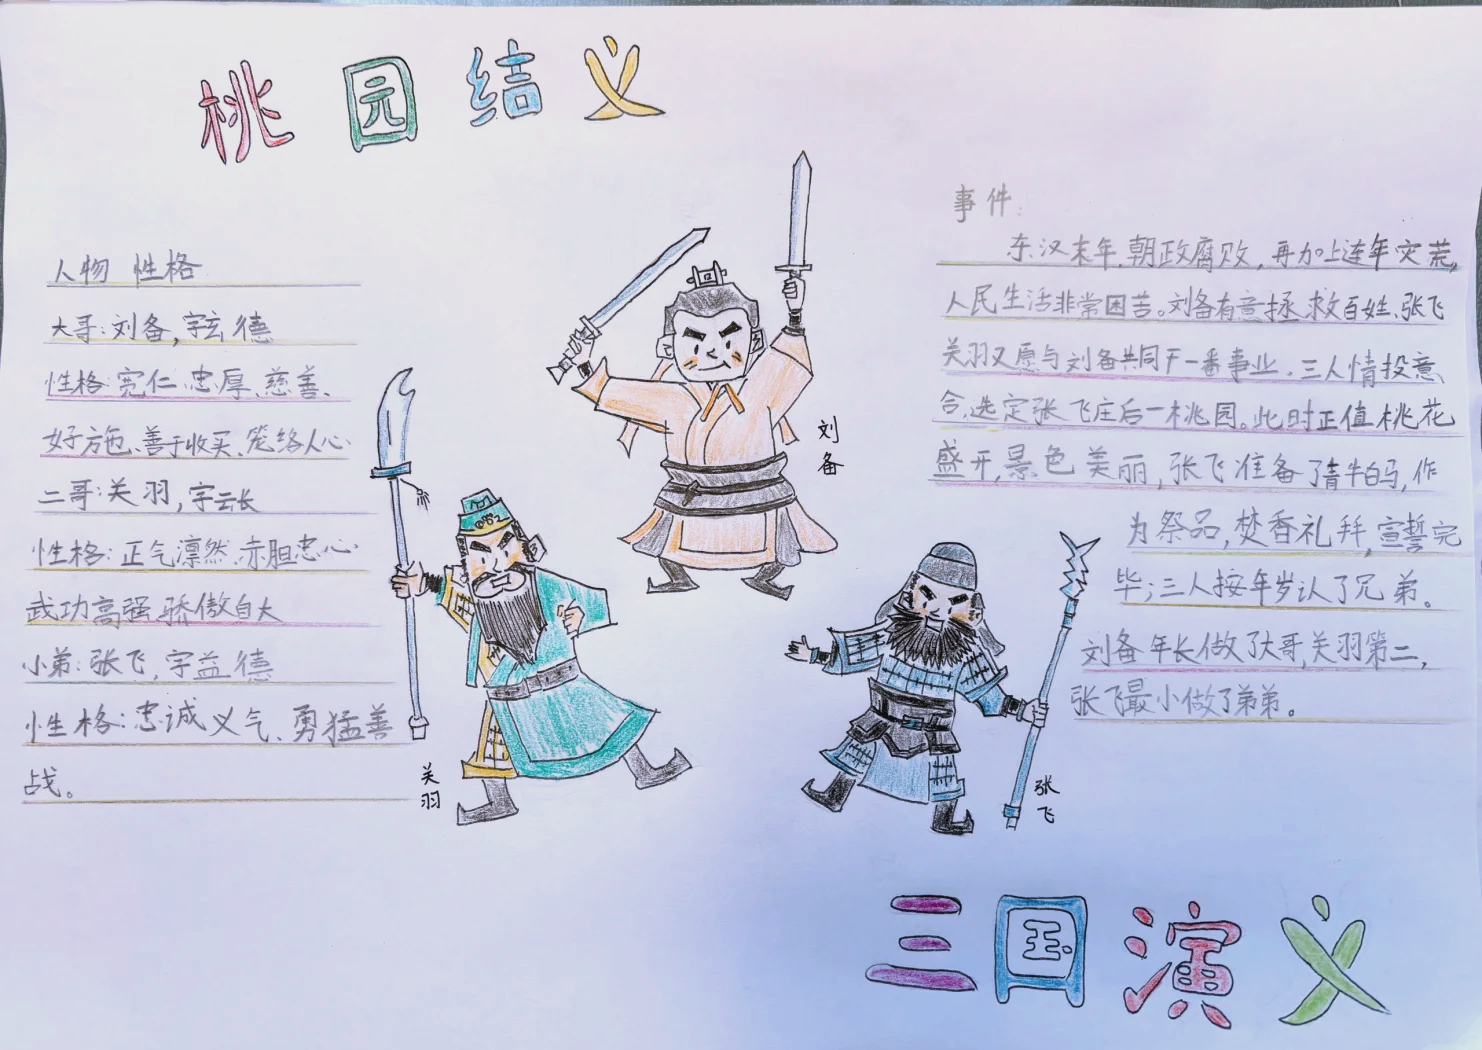 桃园结义
人物 性格
大哥:刘备,字玄德
性格:宽仁、忠厚、慈善、
好施、善于收买、笼络人心
二哥:关羽,字云长
性格:正气凛然、赤胆忠心
武功高强、骄傲自大
小弟:张飞,字益德
性格:忠诚义气、勇猛善
战。
刘备
关羽
张飞
事件:
东汉末年,朝政腐败,再加上连年灾荒,
人民生活非常困苦。刘备有意拯救百姓、张飞
关羽又愿与刘备共同干一番事业、三人情投意
合,选定张飞庄后一桃园。此时正值桃花
盛开,景色美丽,张飞准备了青牛白马,作
为祭品,焚香礼拜,宣誓完
毕;三人按年岁认了兄弟。
刘备年长做了大哥,关羽第二,
张飞最小做了弟弟。
三国演义